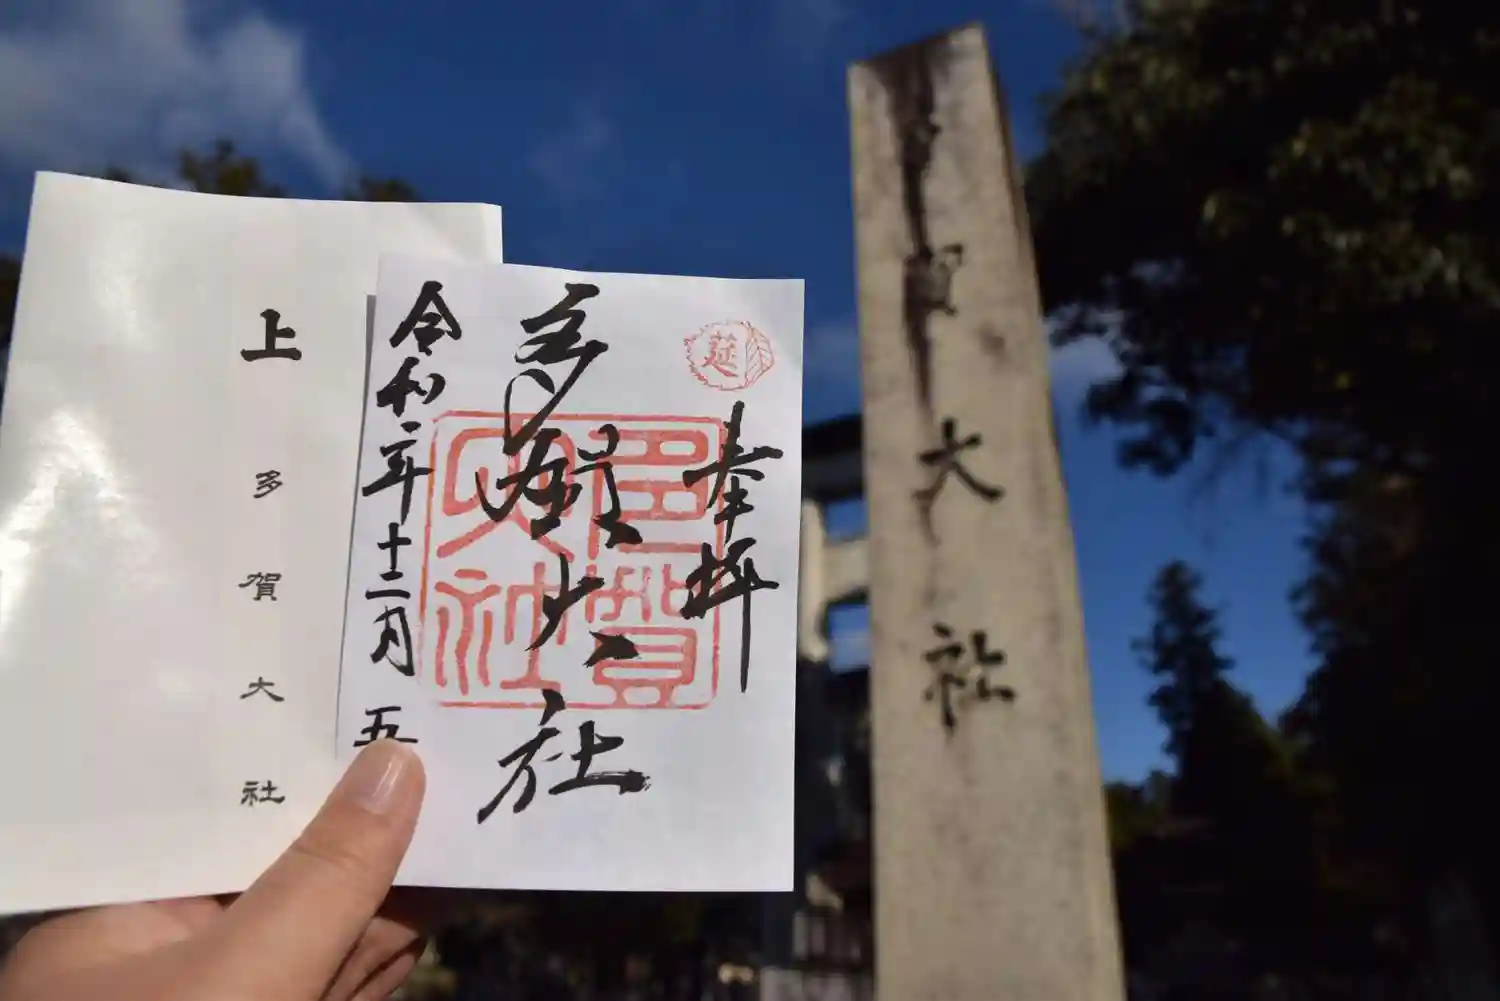 賀大社
莚
奉拝
多賀大社
多賀大社
令和二年十二月五
上
多賀大社